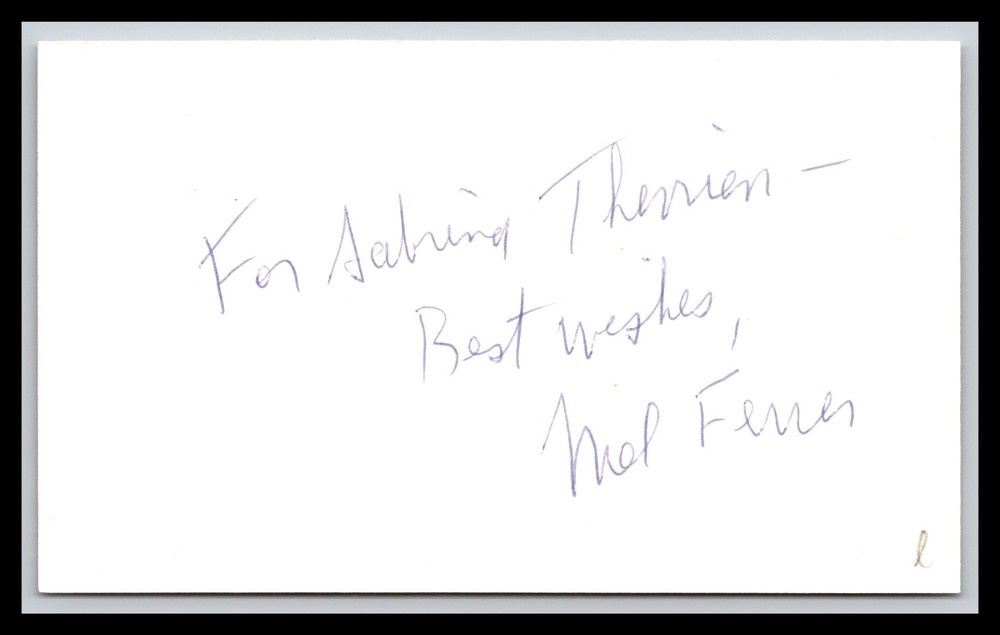 For Sabrina Therrien —
Best wishes,
Mel Ferrer
l